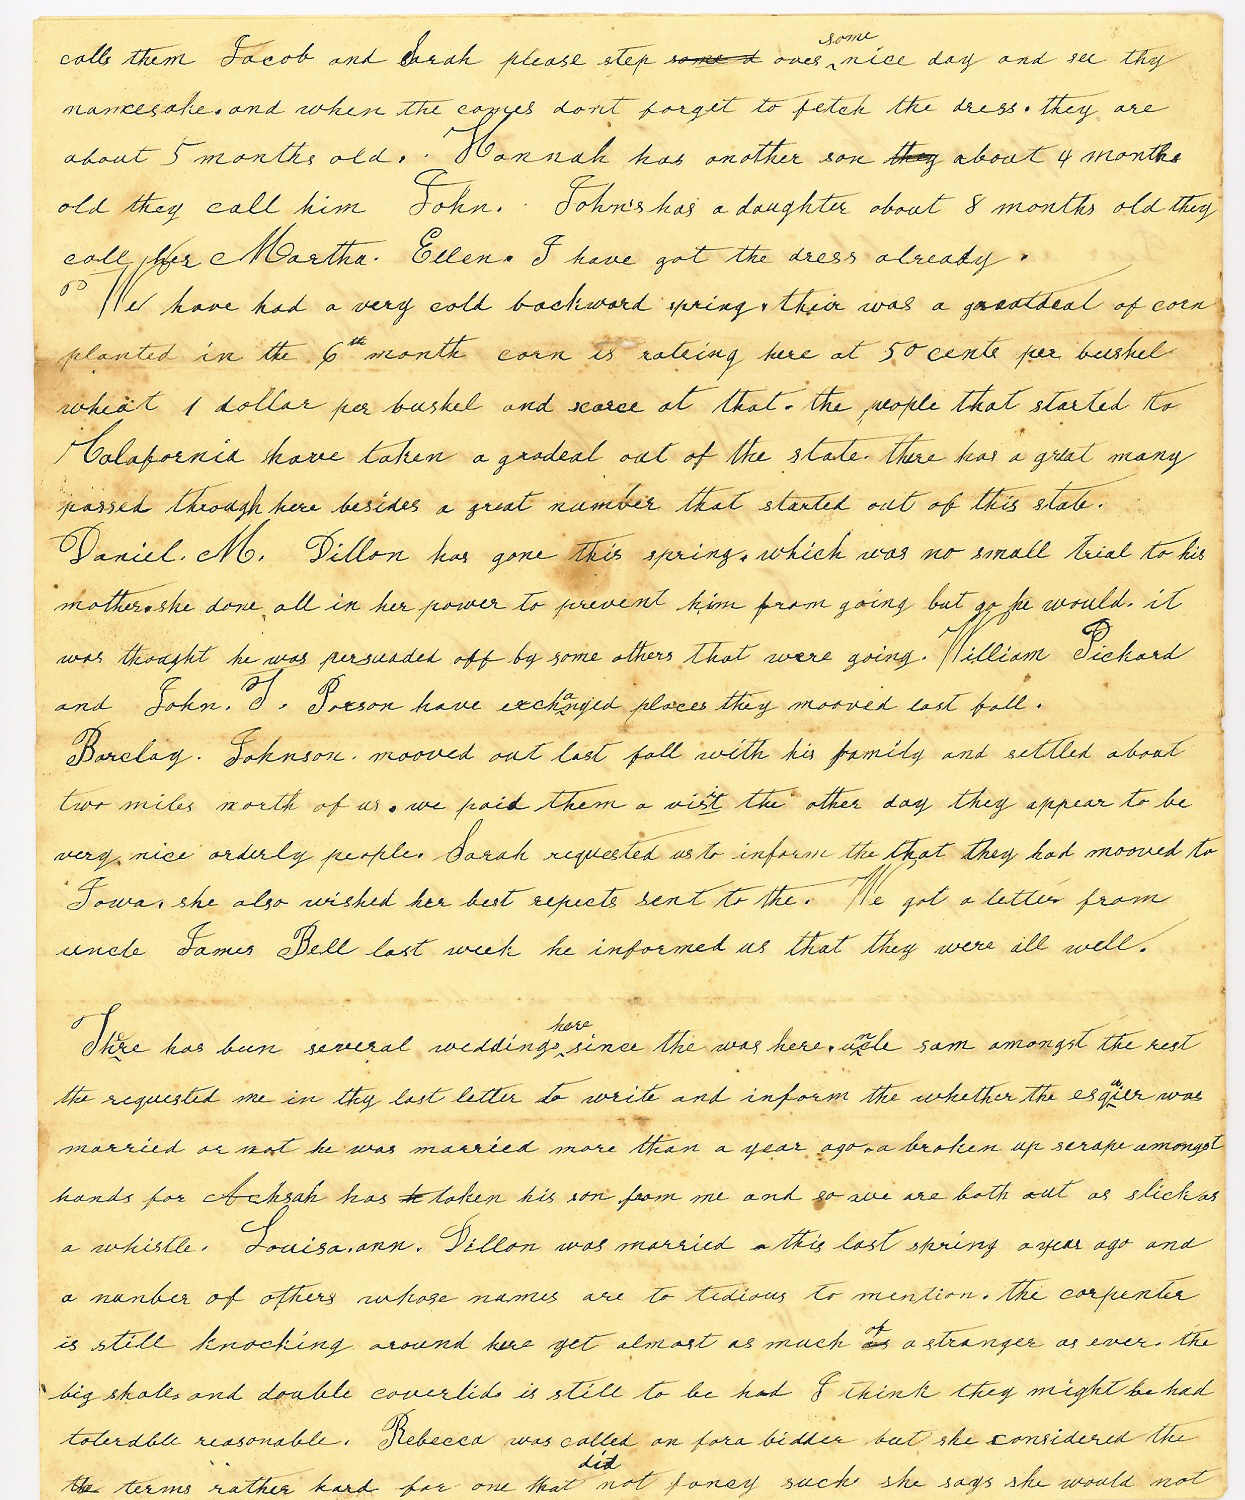 calls them Jacob and Sarah please step some d over some nice day and see thy
namesake. and when the comes dont forget to fetch the dress. they are
about 5 months old. Hannah has another son they about 4 months
old they call him John. John's has a daughter about 8 months old they
call her Martha. Ellen. I have got the dress already.
We have had a very cold backward spring. thair was a greatdeal of corn
planted in the 6th month corn is rateing here at 50 cents per bushel
wheat 1 dollar per bushel and scarce at that. the people that started to
Calafornia have taken a gradeal out of the state. there has a great many
passed through here besides a great number that started out of this state.
Daniel. M. Dillon has gone this spring. which was no small trial to his
mother. she done all in her power to prevent him from going but go he would. it
was thought he was persuaded off by some others that were going. William Pickard
and John. T. Parson have exchanged places they mooved last fall.
Barclay. Johnson. mooved out last fall with his family and settled about
two miles north of us. we paid them a visit the other day they appear to be
very nice orderly people. Sarah requested us to inform the that they had mooved to
Iowa. she also wished her best repects sent to the. We got a letter from
uncle James Bell last week he informed us that they were all well.
Thre has bun several weddings here since the was here. uncle sam amongst the rest
the requested me in thy last letter to write and inform the whether the esquier was
married or not he was married more than a year ago. a broken up scrape amongst
hands for Achsah has h taken his son from me and so we are both out as slick as
a whistle. Louisa. ann. Dillon was married a this last spring a year ago and
a nunber of others whose names are to tedious to mention. the carpenter
is still knocking around here yet almost as much as of a stranger as ever. the
big shoals and double coverlids is still to be had I think they might be had
tolerable reasonable. Rebecca was called on for a bidder but she considered the
the terms rather hard for one that did not fancy such she says she would not